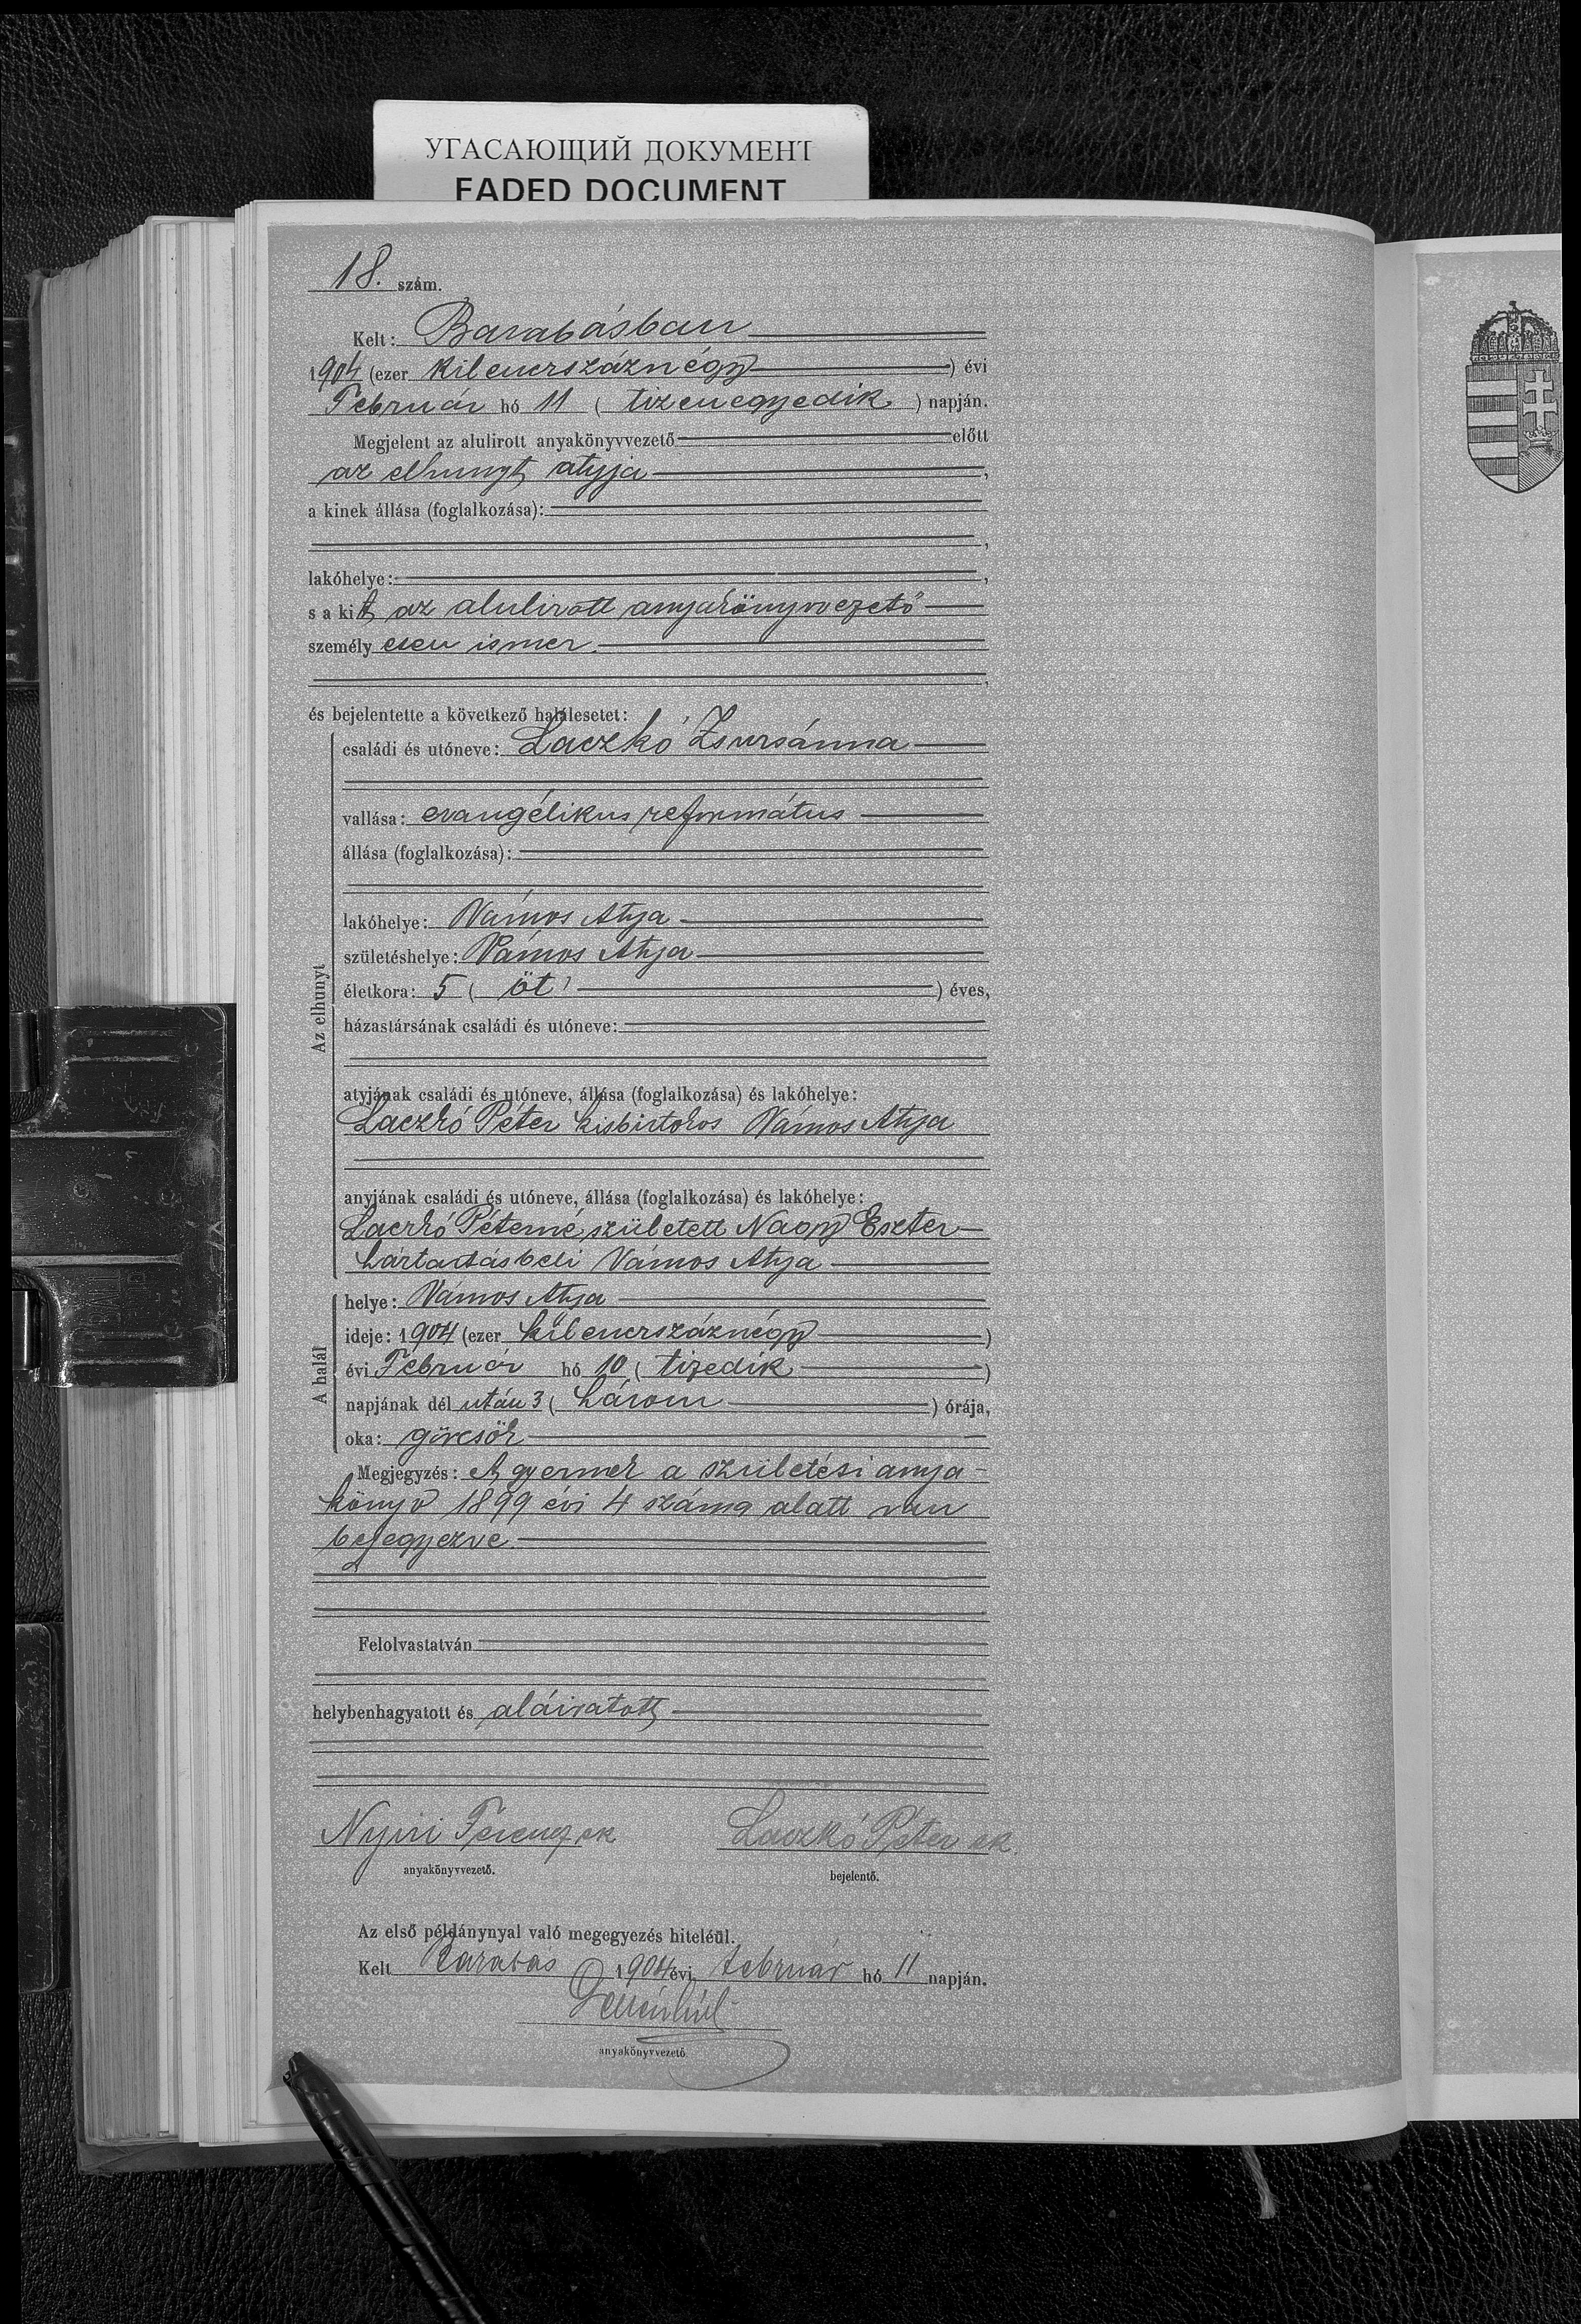 УГАСАЮЩИЙ ДОКУМЕНТ
FADED DOCUMENT
18. szám.
Kelt: Barabásban
1904 (ezer kilencszáznégy) évi
Február hó 11 (tizenegyedik) napján.
Megjelent az alulirott anyakönyvvezető előtt
az elhunyt atyja,
a kinek állása (foglalkozása):
,
lakóhelye: ,
s a kit az alulirott anyakönyvvezető
személyesen ismer.
,
és bejelentette a következő halálesetet:
Az elhunyt
családi és utóneve: Laczkó Zsuzsánna
vallása: evangélikus református
állása (foglalkozása):
lakóhelye: Vámos Atya
születéshelye: Vámos Atya
életkora: 5 (öt) éves,
házastársának családi és utóneve:
atyjának családi és utóneve, állása (foglalkozása) és lakóhelye:
Laczkó Péter kisbirtokos Vámos Atya
anyjának családi és utóneve, állása (foglalkozása) és lakóhelye:
Laczkó Péterné született Nagy Eszter
háztartásbeli Vámos Atya
A halál
helye: Vámos Atya
ideje: 1904 (ezer kilencszáznégy)
évi Február hó 10 (tizedik)
napjának dél után 3 (három) órája,
oka: görcsök
Megjegyzés: A gyermek a születési anya-
könyv 1899 évi 4 száma alatt van
bejegyezve.
Felolvastatván
helybenhagyatott és aláiratott
Nyiri Ferencz sk Laczkó Péter sk.
anyakönyvvezető. bejelentő.
Az első példánynyal való megegyezés hiteléül.
Kelt Barabás 1904 évi február hó 11 napján.
anyakönyvvezető